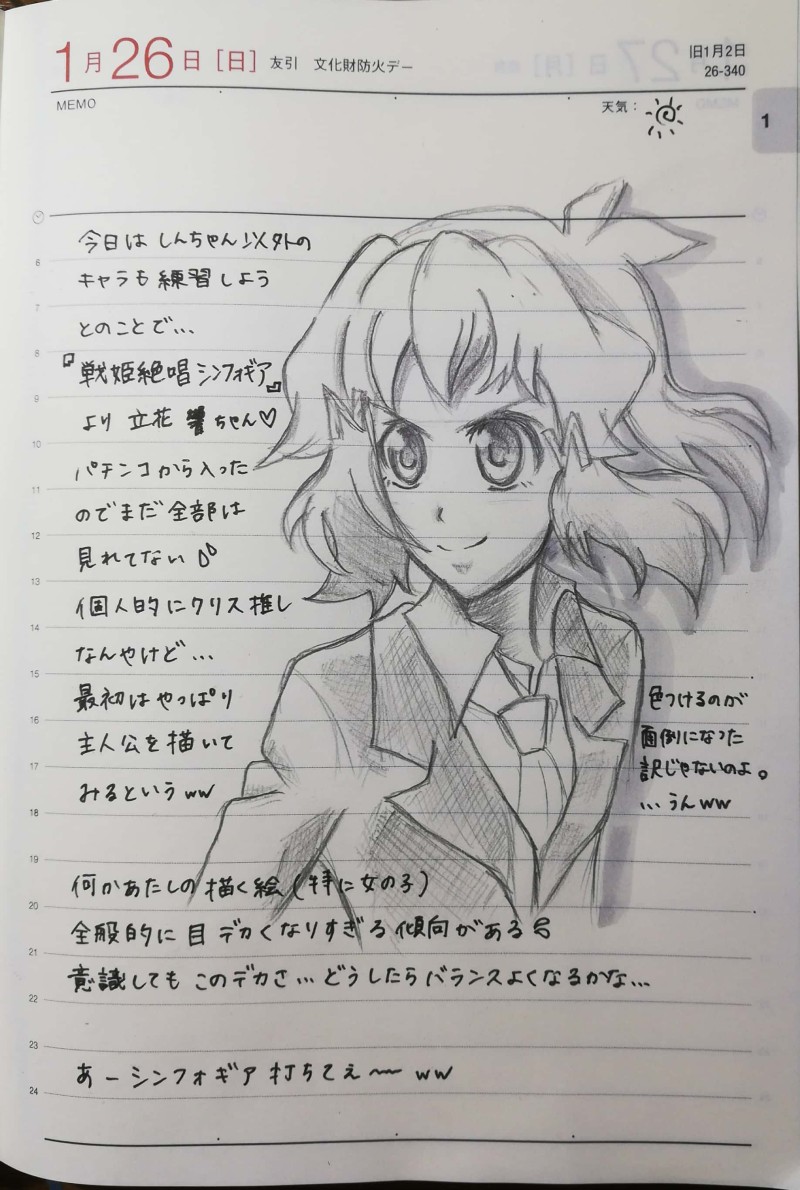 1月26日［日］ 友引 文化財防火デー
旧1月2日
26-340
MEMO
天気：
1
今日は しんちゃん以外の
キャラも練習しよう
とのことで…
『戦姫絶唱シンフォギア』
より 立花 響ちゃん♡
パチンコから入った
のでまだ全部は
見れてない
個人的にクリス推し
なんやけど…
最初はやっぱり
主人公を描いて
みるというww
色つけるのが
面倒になった
訳じゃないのよ。
…うんww
何かあたしの描く絵(特に女の子)
全般的に目デカくなりすぎる傾向がある
意識しても このデカさ…どうしたらバランスよくなるかな…
あーシンフォギア打ちてぇ〜ww
6
7
8
9
10
11
12
13
14
15
16
17
18
19
20
21
22
23
24